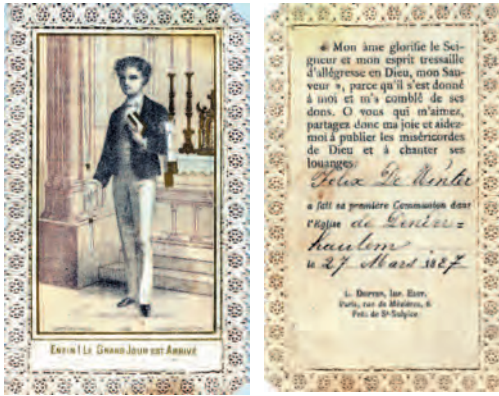 ENFIN! LE GRAND JOUR EST ARRIVÉ
« Mon âme glorifie le Sei-
gneur et mon esprit tressaille
d'allégresse en Dieu, mon Sau-
veur », parce qu'il s'est donné
à moi et m'a comblé de ses
dons. O vous qui m'aimez,
partagez donc ma joie et aidez-
moi à publier les miséricordes
de Dieu et à chanter ses
louanges.
Félix De Winter
a fait sa première Communion dans
l'Eglise de Denter=
hautem
le 27 Mars 1887
Paris, rue de Mézières, 6
Près de St-Sulpice